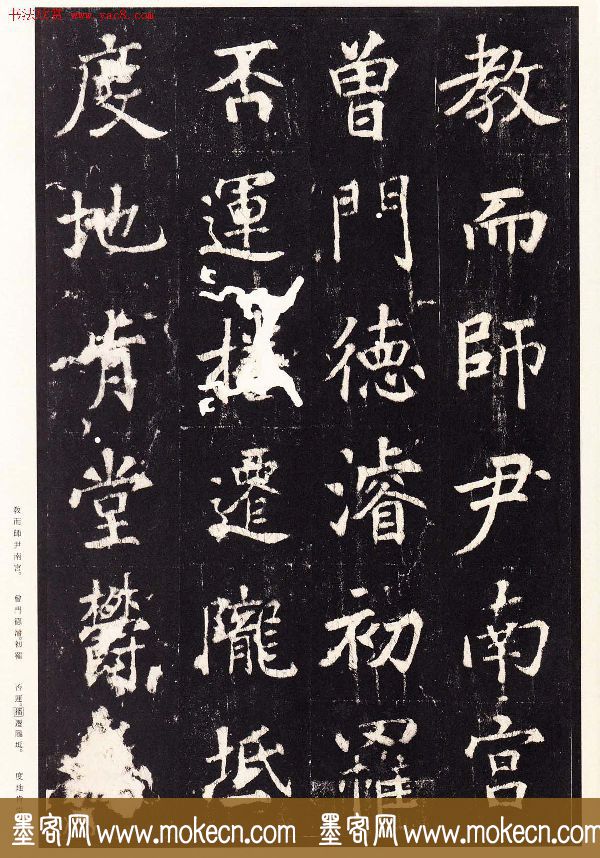 书法欣赏 www.yac8.com
教而師尹南宮
曾門德濬初羅
否運播遷隴坻
度地肯堂欝
教而師尹南宮。 曾門德濬。初羅 否運播遷隴坻。 度地肯
墨客网 www.mokecn.com 墨客网 www.mokecn.com